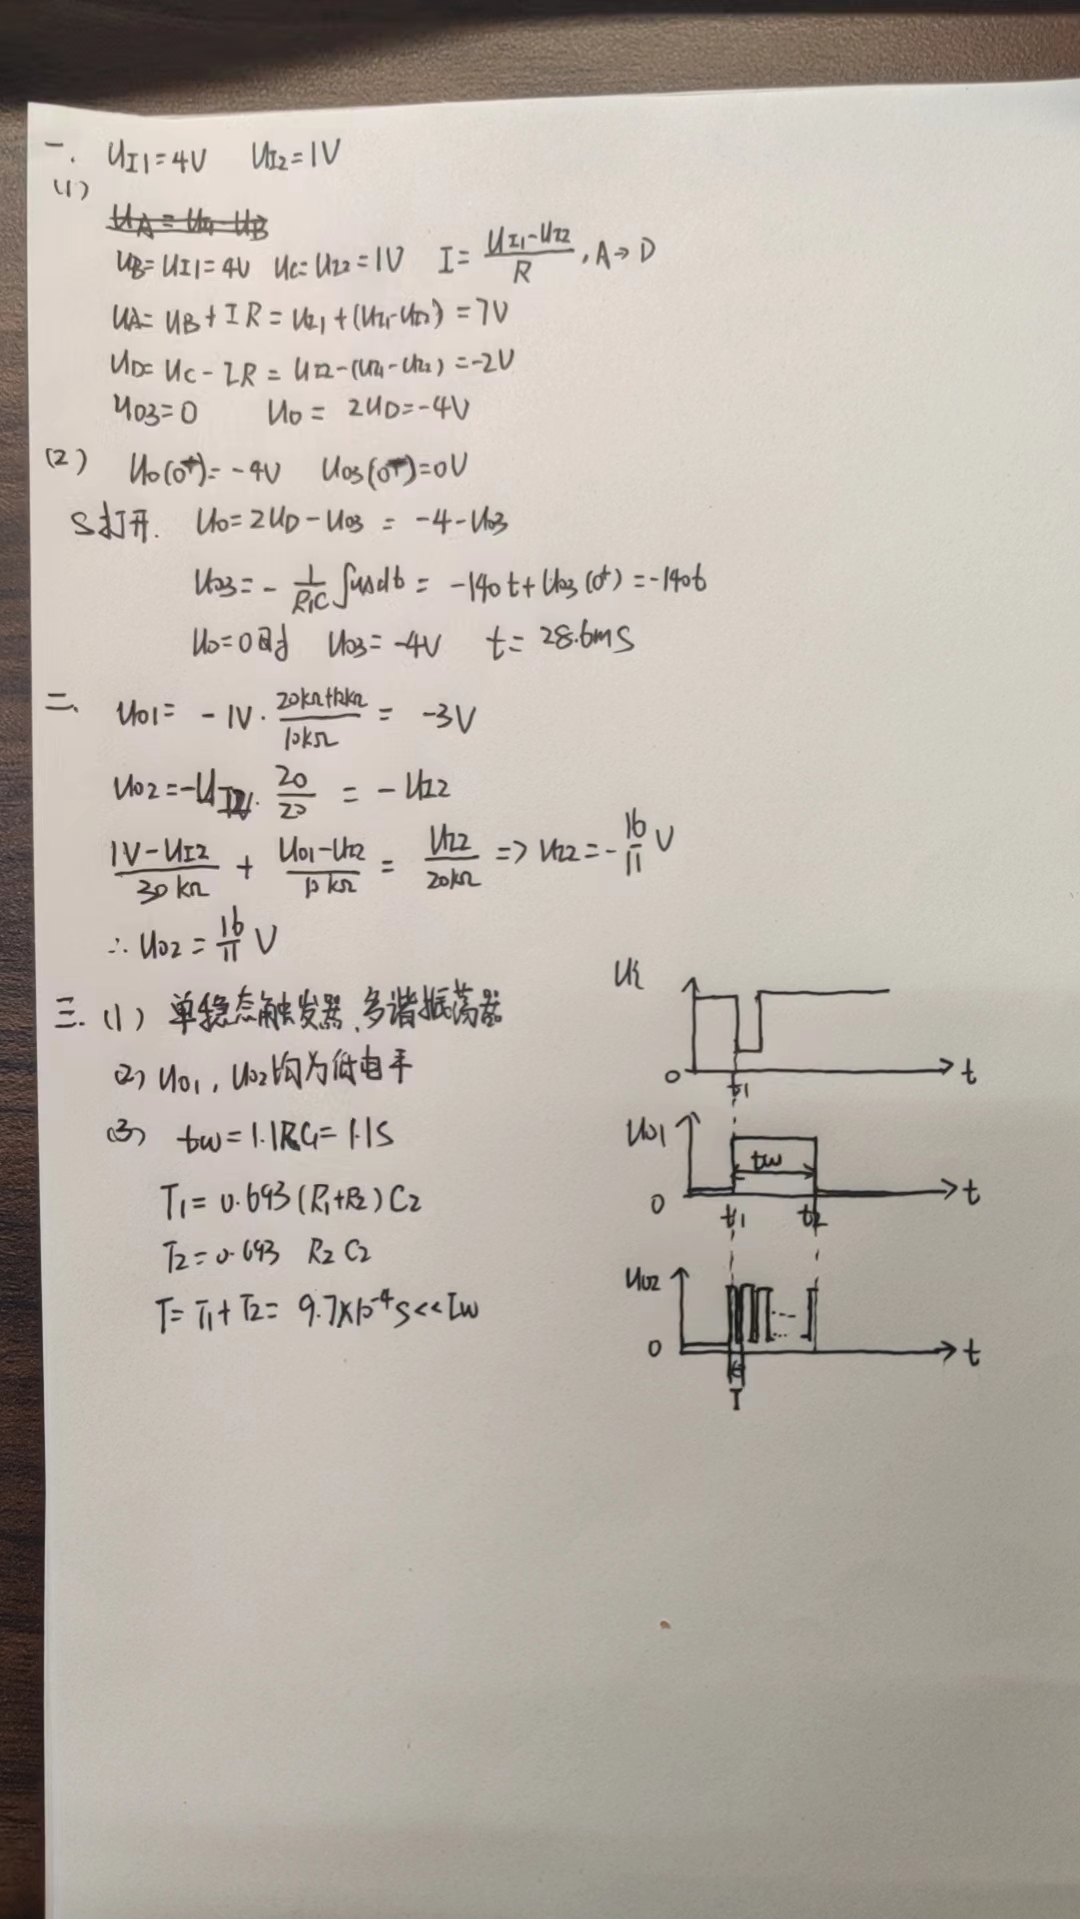 一. U_I1=4V U_I2=1V
(1)
U_A=U_I1-U_B
U_B=U_I1=4V U_C=U_I2=1V I=(U_I1-U_I2)/R, A→D
U_A=U_B+IR=U_I1+(U_I1-U_I2)=7V
U_D=U_C-IR=U_I2-(U_I1-U_I2)=-2V
U_O3=0 U_O=2U_D=-4V
(2) U_O(0⁺)=-4V U_O3(0⁺)=0V
S打开. U_O=2U_D-U_O3=-4-U_O3
U_O3=-1/(R₁C)∫U_A dt=-140t+U_O3(0⁺)=-140t
U_O=0时 U_O3=-4V t=28.6mS
二、U_O1=-1V·(20kΩ+10kΩ)/10kΩ=-3V
U_O2=-U_I2·20/20=-U_I2
(1V-U_I2)/30kΩ+(U_O1-U_I2)/10kΩ=U_I2/20kΩ=>U_I2=-16/11V
∴U_O2=16/11V
三.(1)单稳态触发器、多谐振荡器
(2)U_O1,U_O2均为低电平
(3) tw=1.1RC₁=1.1S
T₁=0.693(R₁+R₂)C₂
T₂=0.693 R₂C₂
T=T₁+T₂=9.7×10⁻⁴S<<Tw
Ui
0 t₁ t
U_O1
tw
0 t₁ t₂ t
U_O2
0 t
T